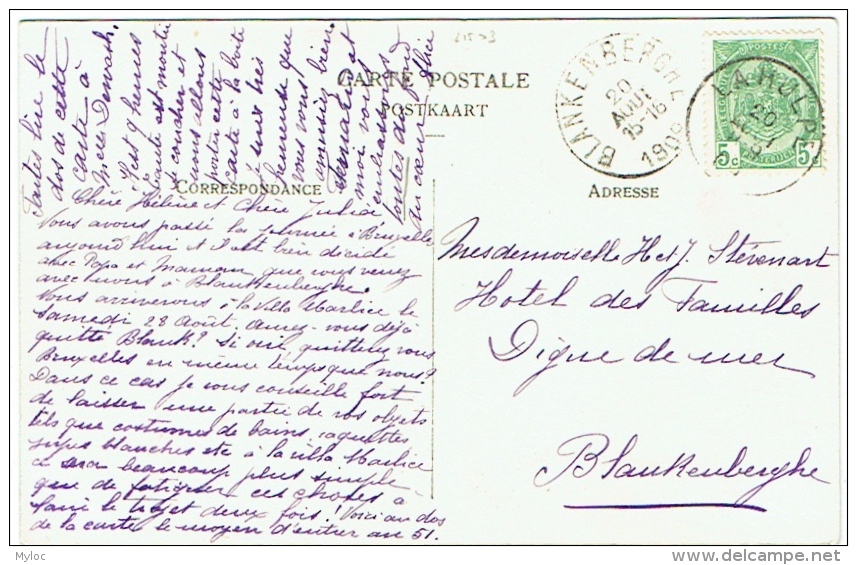 CARTE POSTALE
POSTKAART
CORRESPONDANCE
ADRESSE
BLANKENBERGHE
20
AOUT
15-16
1909
LA HULPE
20
5c 5c
POSTES
Chère Hélène et Chère Julia
Nous avons passé la journée à Bruxelles
aujourd'hui et il est bien décidé
avec Papa et Maman que vous venez
avec nous à Blankenberghe.
Nous arriverons à la Villa Marlice le
samedi 28 Août. Aurez-vous déjà
quitté Blank? Si oui, quitterez-vous
Bruxelles en même temps que nous?
Dans ce cas je vous conseille fort
de laisser une partie de vos objets
tels que costumes de bains, raquettes
jupes blanches etc à la villa Marlice
ce sera beaucoup plus simple
que de fatiguer ces choses à
faire le trajet deux fois! Voici au dos
de la carte le moyen d'entrer au 51.
Faites lire le
dos de cette
carte à
9 heures
Tante est montée
se coucher et
nous allons
porter cette
carte à la boîte
Je suis très
heureuse que
vous vous
amusiez bien.
et
moi vous
embrassons
toutes du fond
du cœur Alice
Mesdemoiselle H et J. Stévenart
Hotel des Familles
Digue de mer
Blankenberghe
Myloc
delcampe.net